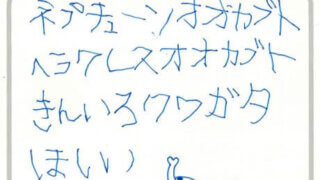 ネプチューンオオカブト
ヘラクレスオオカブト
きんいろクワガタ
ほしい